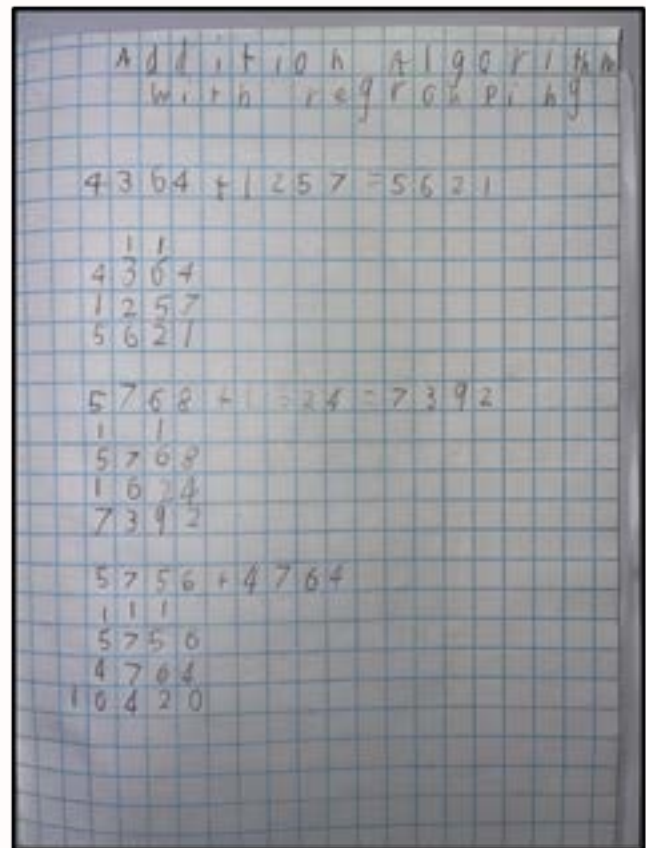 Addition Algorithm
with regrouping
4364 + 1257 = 5621
1 1
4364
1257
5621
5768 + = 7392
1 1
5768
1624
7392
5756 + 4764
1 1 1
5756
4764
10420